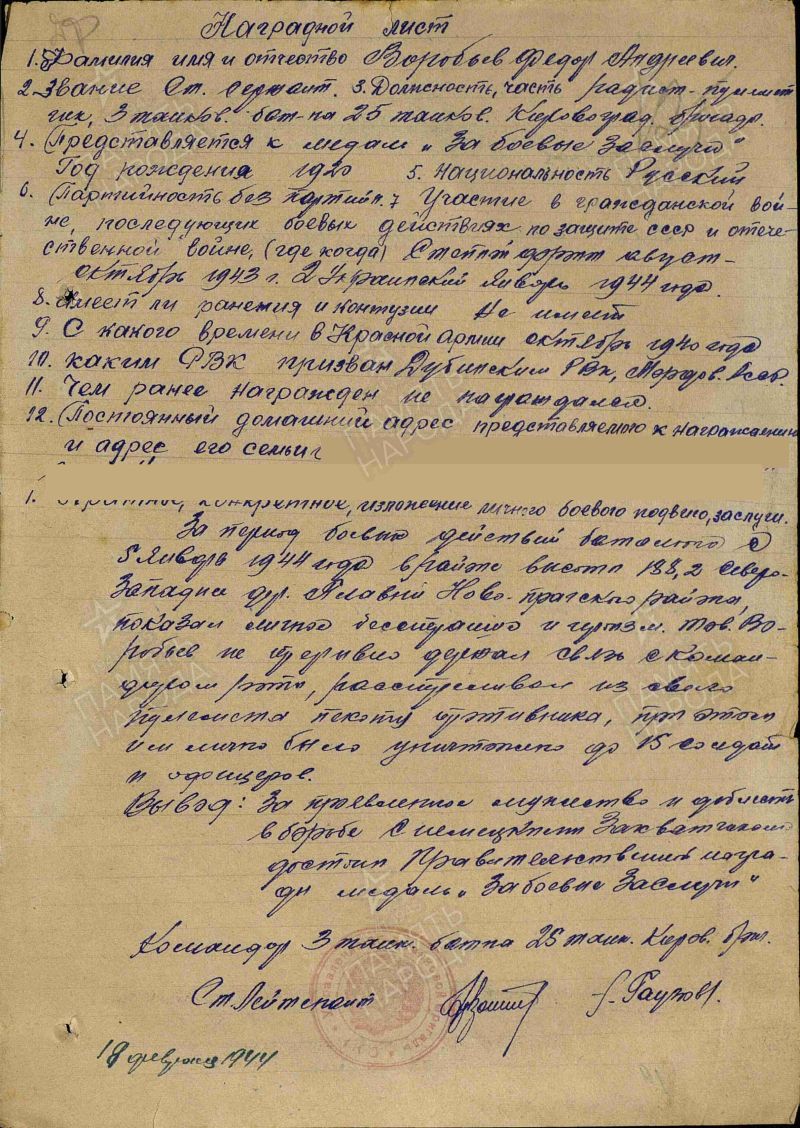 Наградной лист
1. Фамилия имя и отчество Воробьев Федор Андреевич.
2. Звание Ст. сержант. 3. Должность, часть радист-пулемет-
чик, 3 танков. бат-на 25 танков. Кировоград. бригады.
4. Представляется к медали „За боевые Заслуги"
Год рождения 1920 5. Национальность Русский
6. Партийность без партийн. 7 Участие в гражданской вой-
не, последующих боевых действиях по защите СССР и отече-
ственной войне, (где когда) Степной фронт август-
октябрь 1943 г. 2 Украинский Январь 1944 года.
8. Имеет ли ранения и контузии Не имеет
9. С какого времени в Красной армии октябрь 1940 года
10. Каким РВК призван Дубинским РВК, Мордов. Асср.
11. Чем ранее награжден не награждался.
12. Постоянный домашний адрес представляемого к награждению
и адрес его семьи
1. конкретное, изложение личного боевого подвига, заслуги.
За период боевых действий батальона с
5 Января 1944 года в районе высоты 188,2 Северо-
Западнее дер. Ново-Прагского района,
показал личное бесстрашие и героизм. тов. Во-
робьев не прерывно держал связь с коман-
диром роты, расстреливал из своего
пулемета пехоту противника, при этом
им лично было уничтожено до 15 солдат
и офицеров.
Вывод: За проявленное мужество и доблесть
в борьбе с немецкими Захватчиками
достоин Правительственной награ-
ды медаль „За боевые Заслуги"
Командир 3 танк. бат-на 25 танк. Киров. бриг.
Ст. Лейтенант
18 февраля 1944
ПАМЯТЬ НАРОДА